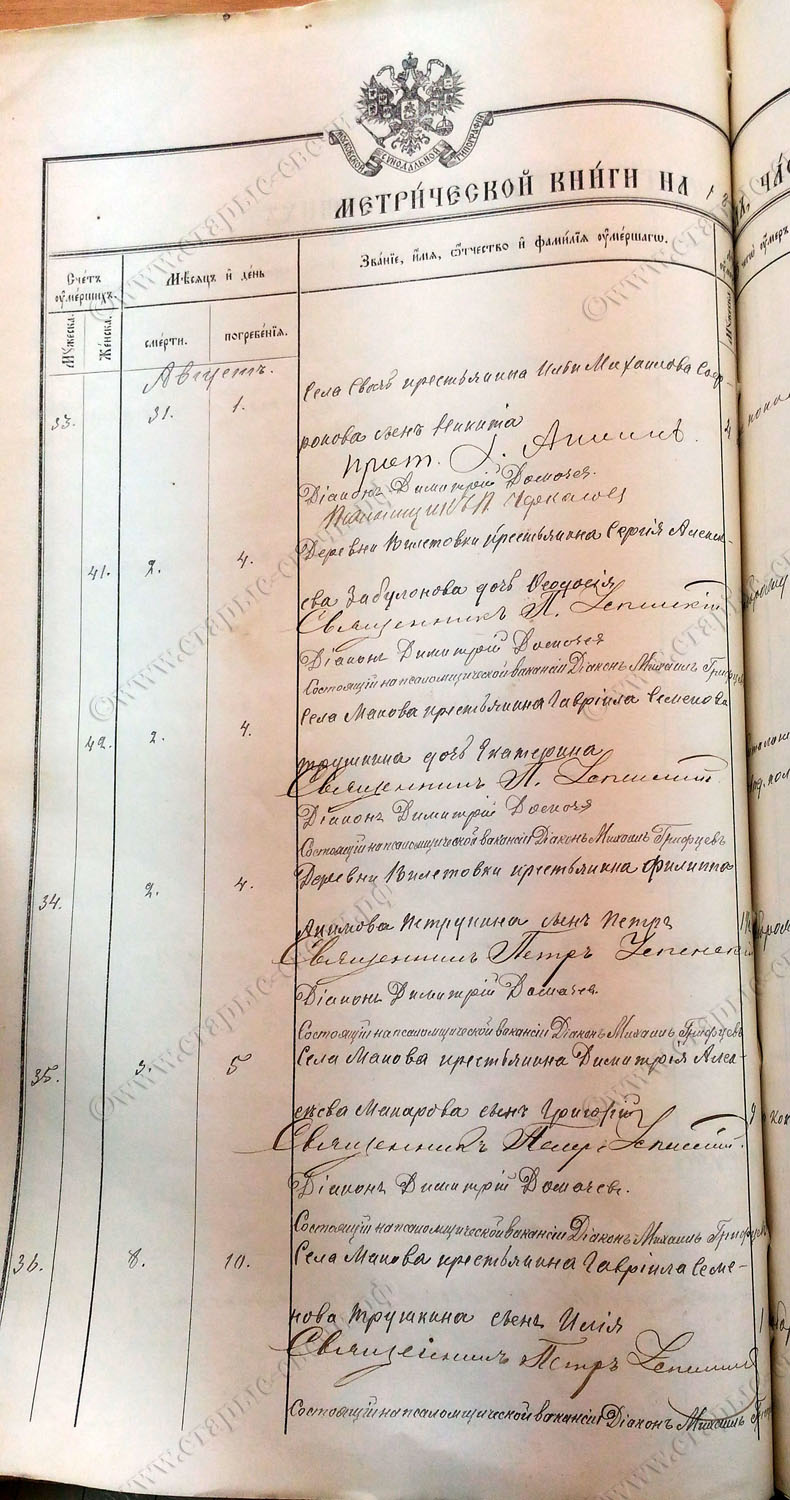 МОСКОВСКОЙ СѴНОДАЛЬНОЙ ТИПОГРАФІИ
МЕТРИ́ЧЕСКОЙ КНИ́ГИ НА 1
Счетъ оумершихъ.
Мужеска.
Женска.
Мѣсяцъ и день
смерти.
погребенія.
Званіе, имя, отчество и фамилія оумершаго.
Августъ.
33. 31. 1. Села крестьянина Ильи Михаилова Соф-
ронова сынъ Никита
прот. І.
Діаконъ Димитрій Домачев.
41. 2. 4. Деревни Вилетовки крестьянина Сергія Алексѣ-
ева Забулонова дочь Ѳеодосія
Священникъ П. Успенскій
Діаконъ Димитрій Домачев
Состоящій на псаломщической вакансіи Діаконъ Михаилъ Грифцев
42. 2. 4. Села Макова крестьянина Гавріила Семенова
Трушкина дочь Екатерина
Священникъ П. Успенскій
Діаконъ Димитрій Домачев
Состоящій на псаломщической вакансіи Діаконъ Михаилъ Грифцевъ
34. 2. 4. Деревни Вилетовки крестьянина Филиппа
Акимова Петрунина сынъ Петръ
Священникъ Петръ Успенскій
Діаконъ Димитрій Домачев.
Состоящій на псаломщической вакансіи Діаконъ Михаилъ Грифцевъ
35. 3. 5 Села Макова крестьянина Димитрія Алек-
сѣева Макарова сынъ Григорій
Священникъ Петръ Успенскій.
Діаконъ Димитрій Домачев.
Состоящій на псаломщической вакансіи Діаконъ Михаилъ Грифцев
36. 8. 10. Села Макова крестьянина Гавріила Семе-
нова Трушкина сынъ Илія
Священникъ Петръ Успенскій
Состоящій на псаломщической вакансіи Діаконъ Михаилъ